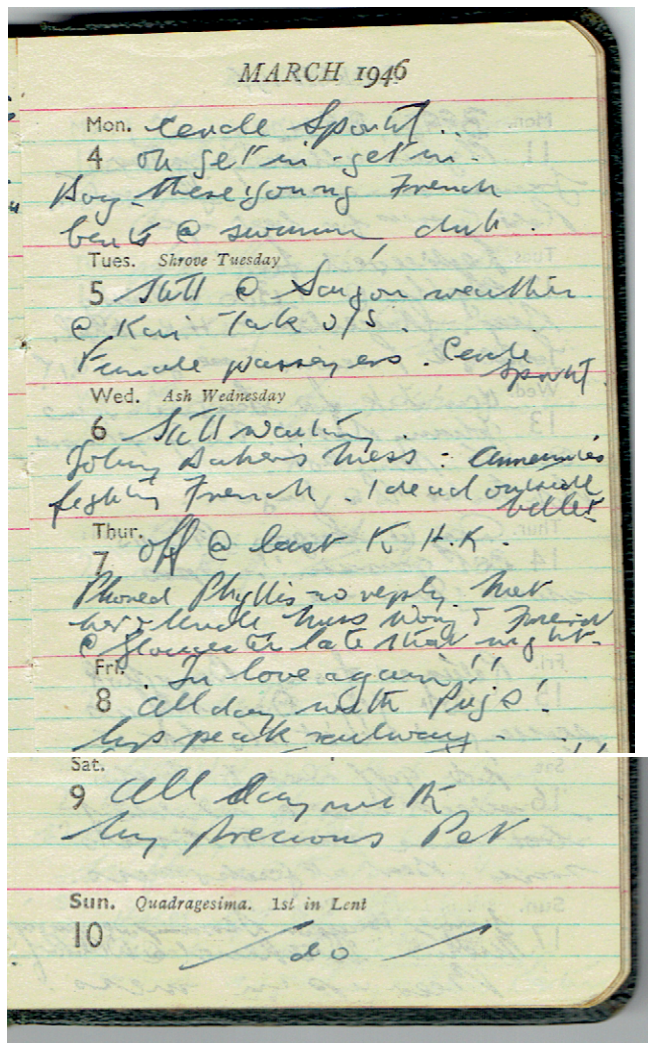 MARCH 1946
Mon. Cercle Sportif..
4 Oh get in - get in -
Boy - these young French
@ swimming club.
Tues. Shrove Tuesday
5 Still @ Saigon weather
@ Kai Tak U/S.
Female passengers. Cercle
Sportif.
Wed. Ash Wednesday
6 Still waiting.
Johnny Bakers Mess: Annamies
fighting French. 1 dead outside
billet
Thur.
7 Off @ last to H.K.
Phoned Phyllis no reply. Met
her & Miss Wong & Friend
@ Gloucester late that night.
Fri. In love again!!
8 All day with Pugs!
up peak railway.
Sat.
9 All day with
my Precious Pet
Sun. Quadragesima. 1st in Lent
10 do